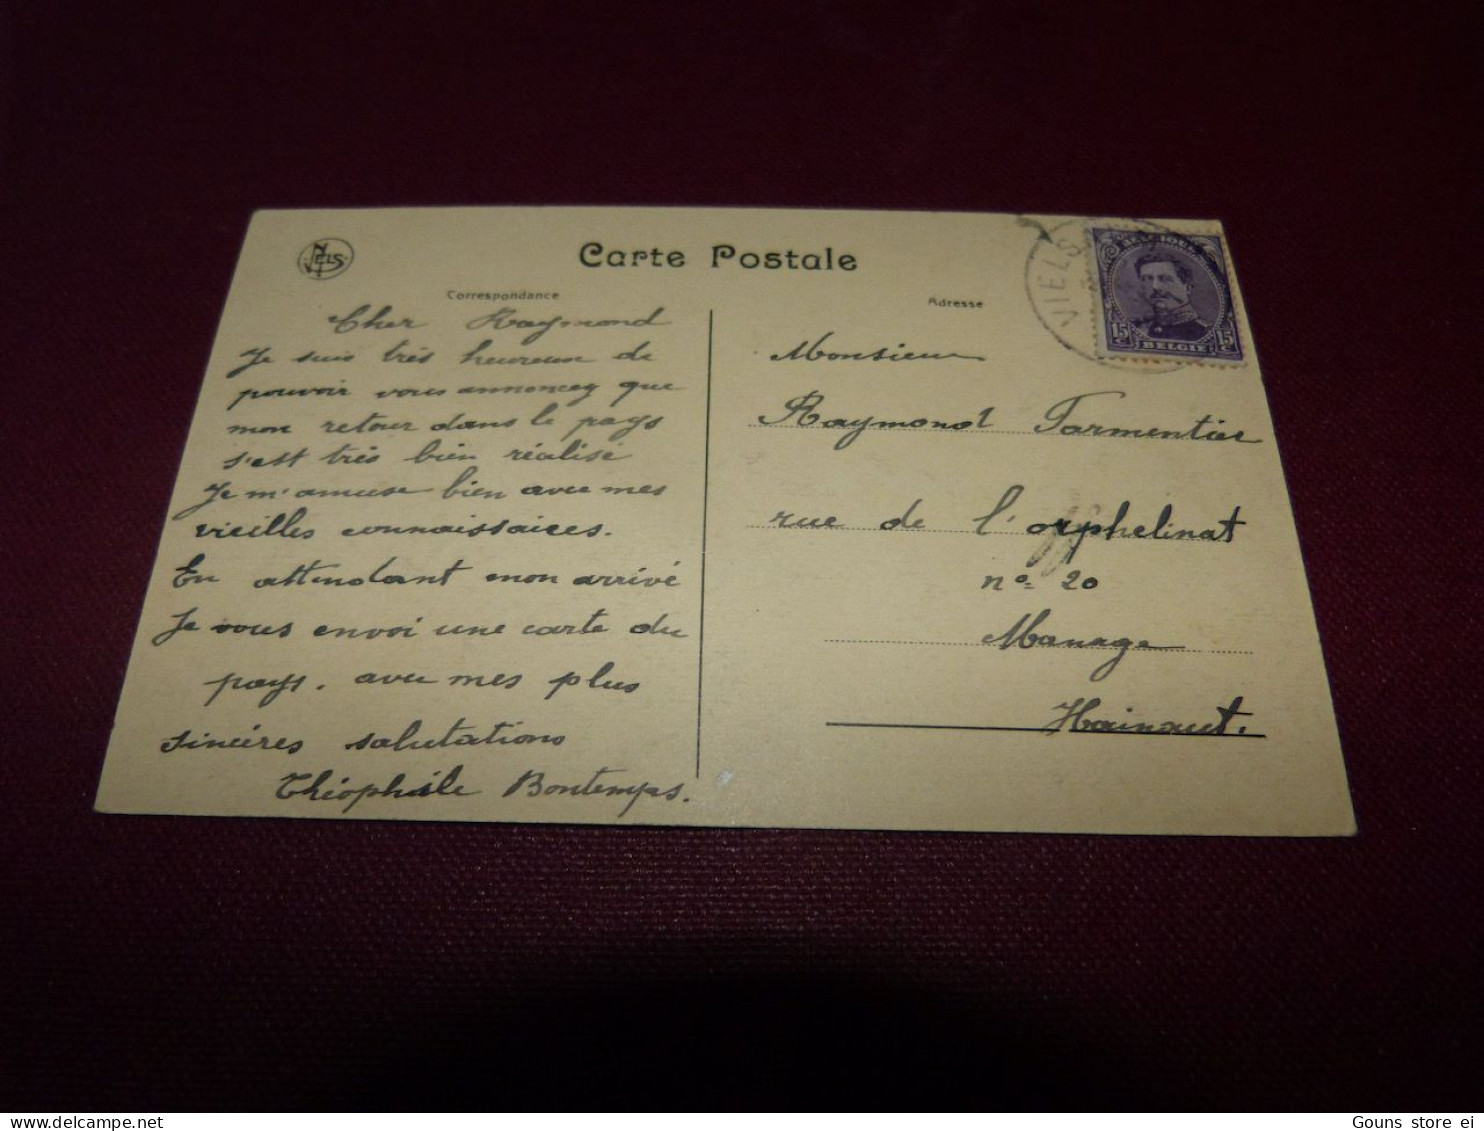 NELS
Carte Postale
Correspondance
Cher Raymond
Je suis très heureux de
pouvoir vous annoncez que
mon retour dans le pays
s'est très bien réalisé
Je m'amuse bien avec mes
vieilles connaissaices.
En attendant mon arrivé
Je vous envoi une carte du
pays. avec mes plus
sincères salutations
Théophile Bontemps.
Adresse
VIELS
BELGIQUE
15 c 15 c
BELGIË
Monsieur
Raymond Parmentier
rue de l'orphelinat
n° 20
Manage
Hainaut.
Gouns store ei